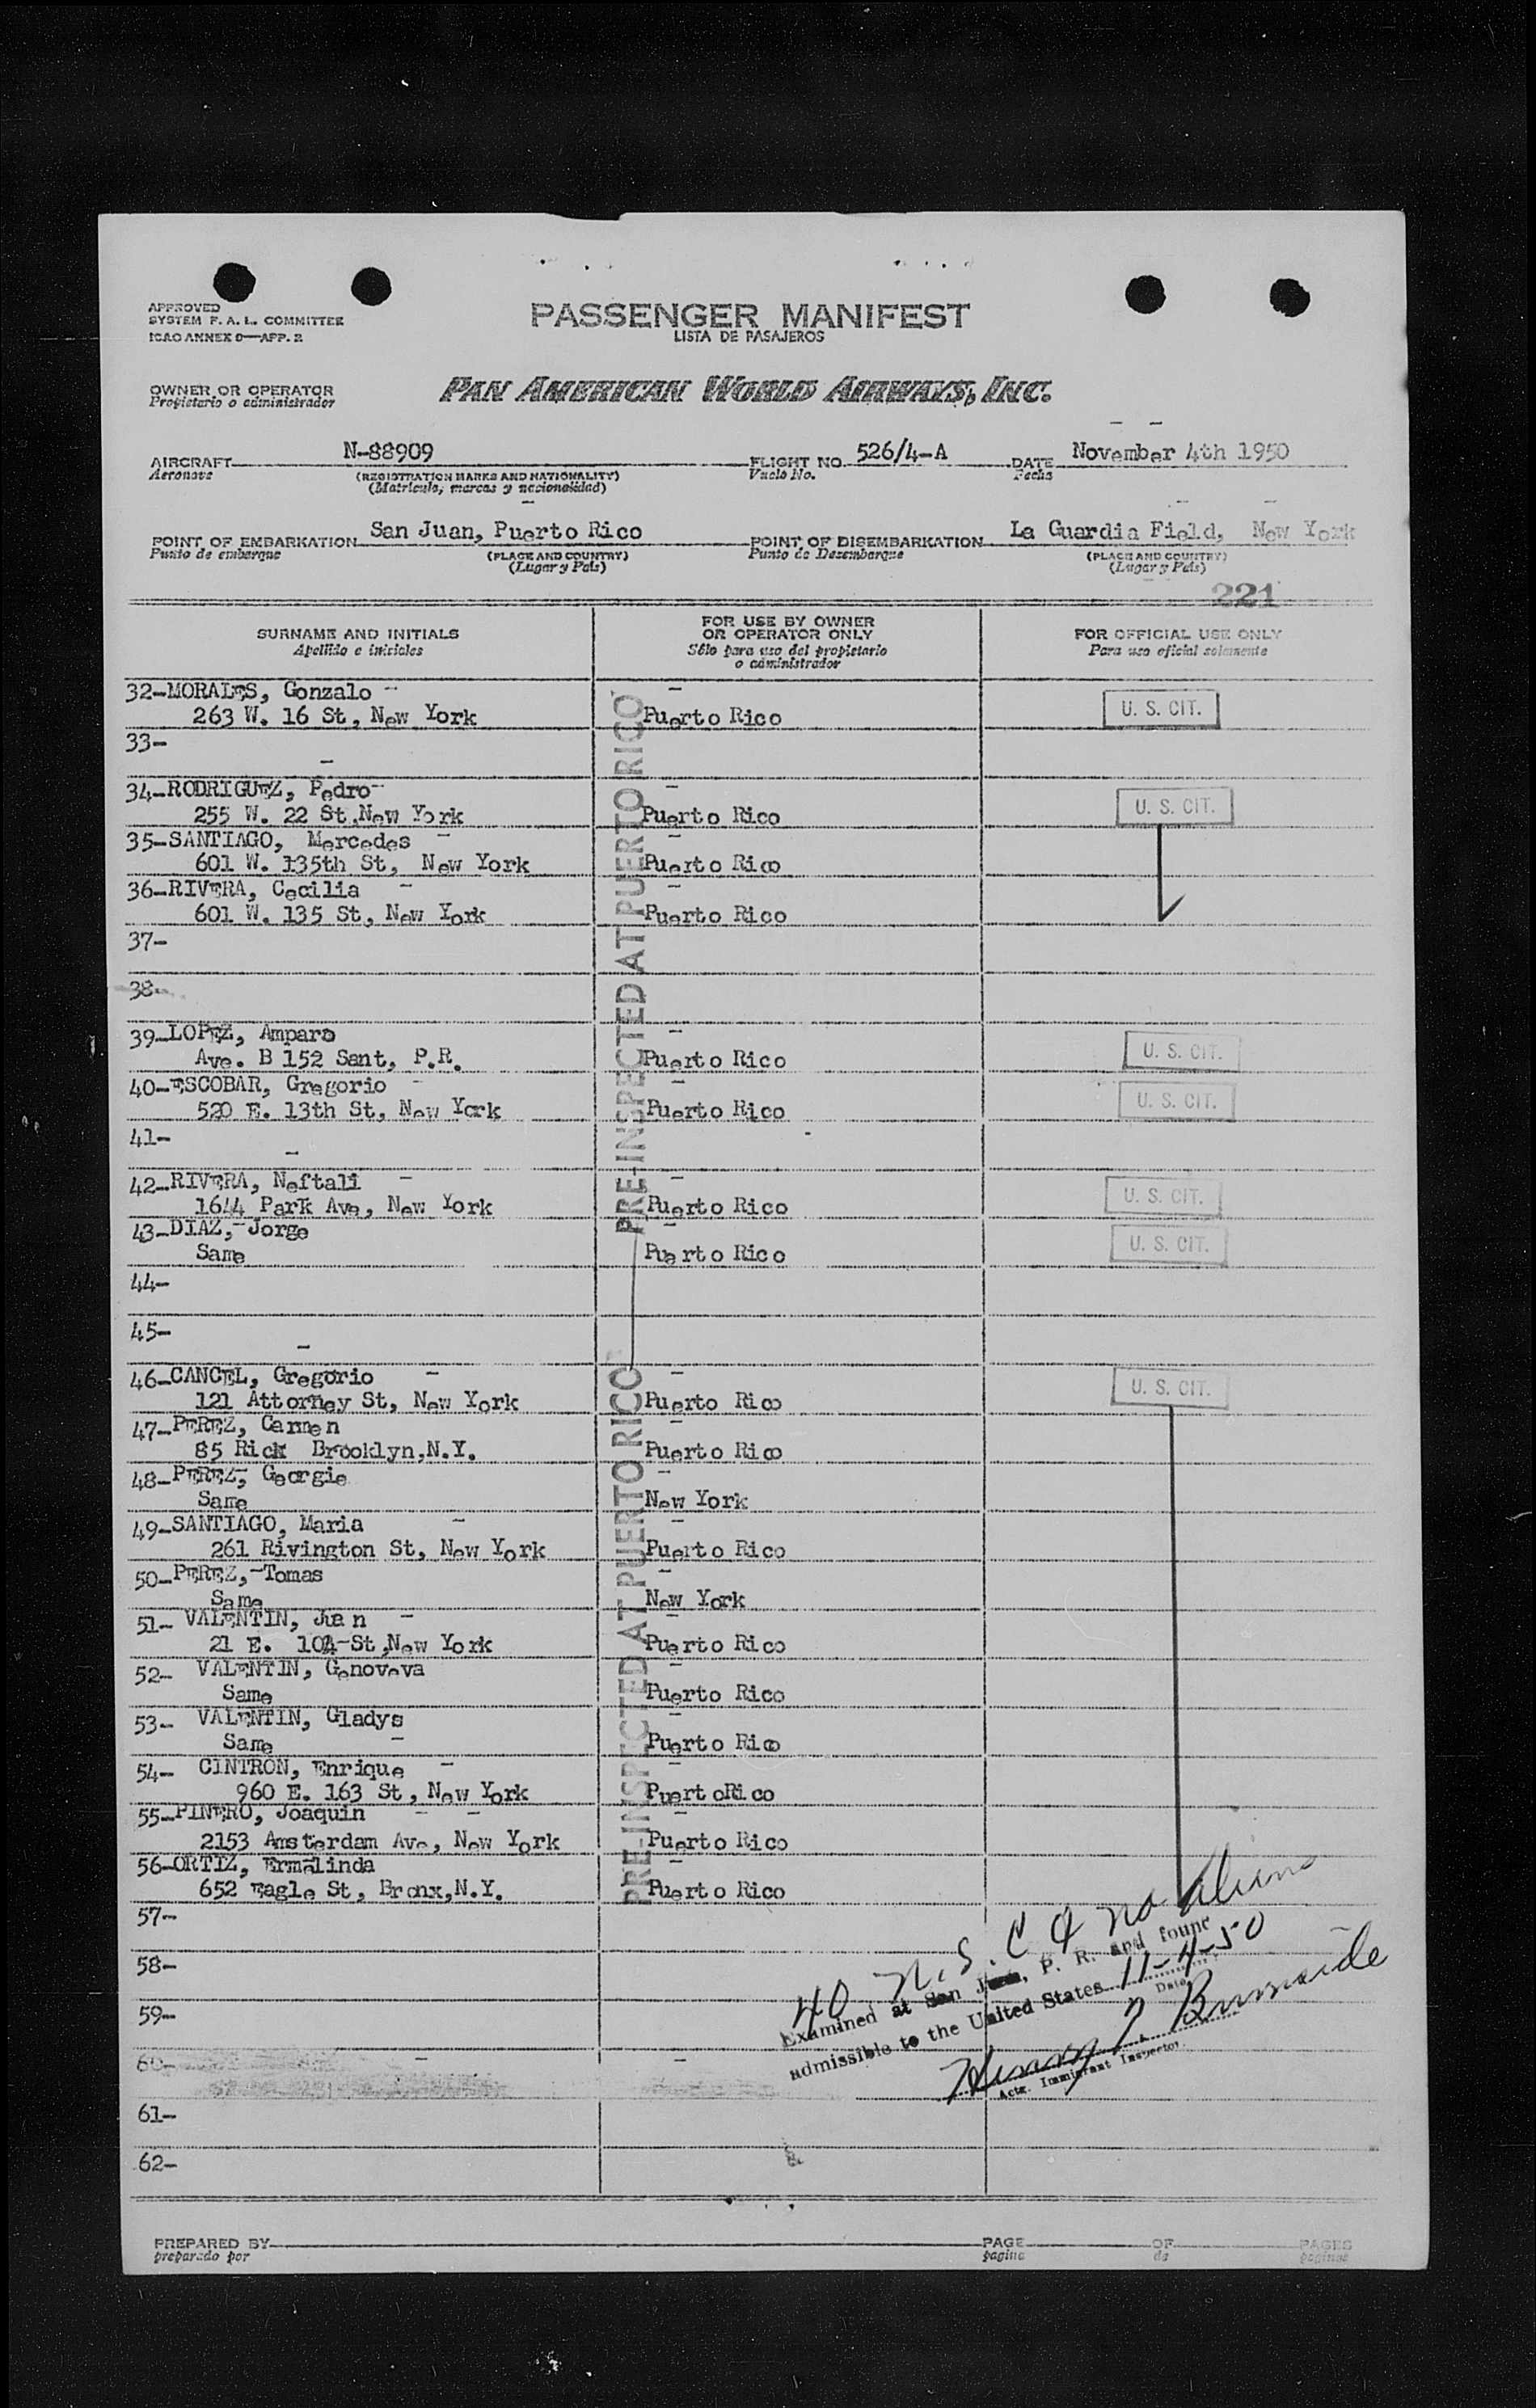 APPROVED
SYSTEM F. A. L. COMMITTEE
ICAO ANNEX 9—APP. 2
PASSENGER MANIFEST
LISTA DE PASAJEROS
OWNER OR OPERATOR
Propietario o administrador
PAN AMERICAN WORLD AIRWAYS, INC.
AIRCRAFT N-88909 FLIGHT NO. 526/4-A DATE November 4th 1950
Aeronave (REGISTRATION MARKS AND NATIONALITY) Vuelo No. Fecha
(Matricula, marcas y nacionalidad)
POINT OF EMBARKATION San Juan, Puerto Rico POINT OF DISEMBARKATION La Guardia Field, New York
Punto de embarque (PLACE AND COUNTRY) Punto de Desembarque (PLACE AND COUNTRY)
(Lugar y Pais) (Lugar y Pais)
221
SURNAME AND INITIALS
Apellido e iniciales
FOR USE BY OWNER
OR OPERATOR ONLY
Sólo para uso del propietario
o administrador
FOR OFFICIAL USE ONLY
Para uso oficial solamente
PRE-INSPECTED AT PUERTO RICO
32-MORALES, Gonzalo
263 W. 16 St, New York Puerto Rico U. S. CIT.
33-
34-RODRIGUEZ, Pedro
255 W. 22 St.New York Puerto Rico U. S. CIT.
35-SANTIAGO, Mercedes
601 W. 135th St, New York Puerto Rico
36-RIVERA, Cecilia
601 W. 135 St, New York Puerto Rico
37-
38-
39-LOPEZ, Amparo
Ave. B 152 Sant, P.R. Puerto Rico U. S. CIT.
40-ESCOBAR, Gregorio
520 E. 13th St, New York Puerto Rico U. S. CIT.
41-
42-RIVERA, Neftali
1644 Park Ave, New York Puerto Rico U. S. CIT.
43-DIAZ, Jorge
Same Puerto Rico U. S. CIT.
44-
45-
PRE-INSPECTED AT PUERTO RICO
46-CANCEL, Gregorio
121 Attorney St, New York Puerto Rico U. S. CIT.
47-PEREZ, Carmen
85 Rick Brooklyn,N.Y. Puerto Rico
48-PEREZ, Georgie
Same New York
49-SANTIAGO, Maria
261 Rivington St, New York Puerto Rico
50-PEREZ,-Tomas
Same New York
51- VALENTIN, Juan
21 E. 104-St,New York Puerto Rico
52- VALENTIN, Genoveva
Same Puerto Rico
53- VALENTIN, Gladys
Same Puerto Rico
54- CINTRON, Enrique
960 E. 163 St, New York PuertoRico
55-PINERO, Joaquin
2153 Amsterdam Ave, New York Puerto Rico
56-ORTIZ, Ermalinda
652 Eagle St, Bronx,N.Y. Puerto Rico
57-
58-
59-
60-
61-
62-
40 U.S.C & no aliens
Examined at San Juan, P. R. and found
admissible to the United States 11-4-50
Date
Henry Burnside
Actg. Immigrant Inspector
PREPARED BY PAGE OF PAGES
preparado por pagina de paginas